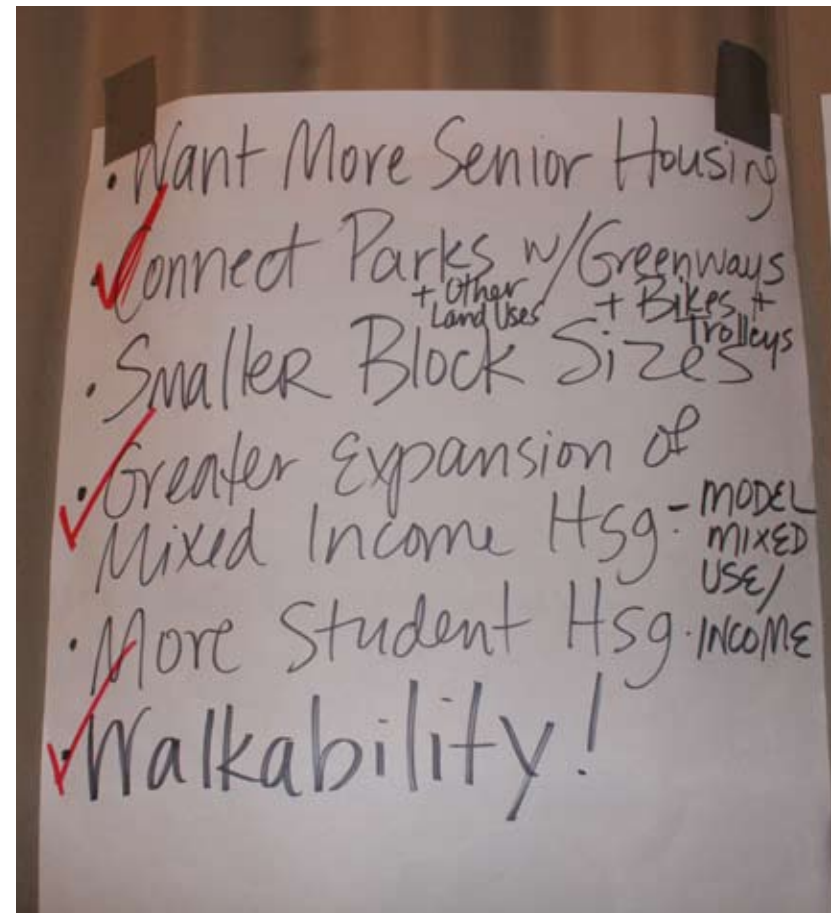 · Want More Senior Housing
· Connect Parks w/Greenways
+ Other + Bikes +
Land Uses Trolleys
· Smaller Block Sizes
· Greater Expansion of
Mixed Income Hsg. - MODEL
MIXED
USE/
INCOME
· More Student Hsg.
· Walkability!